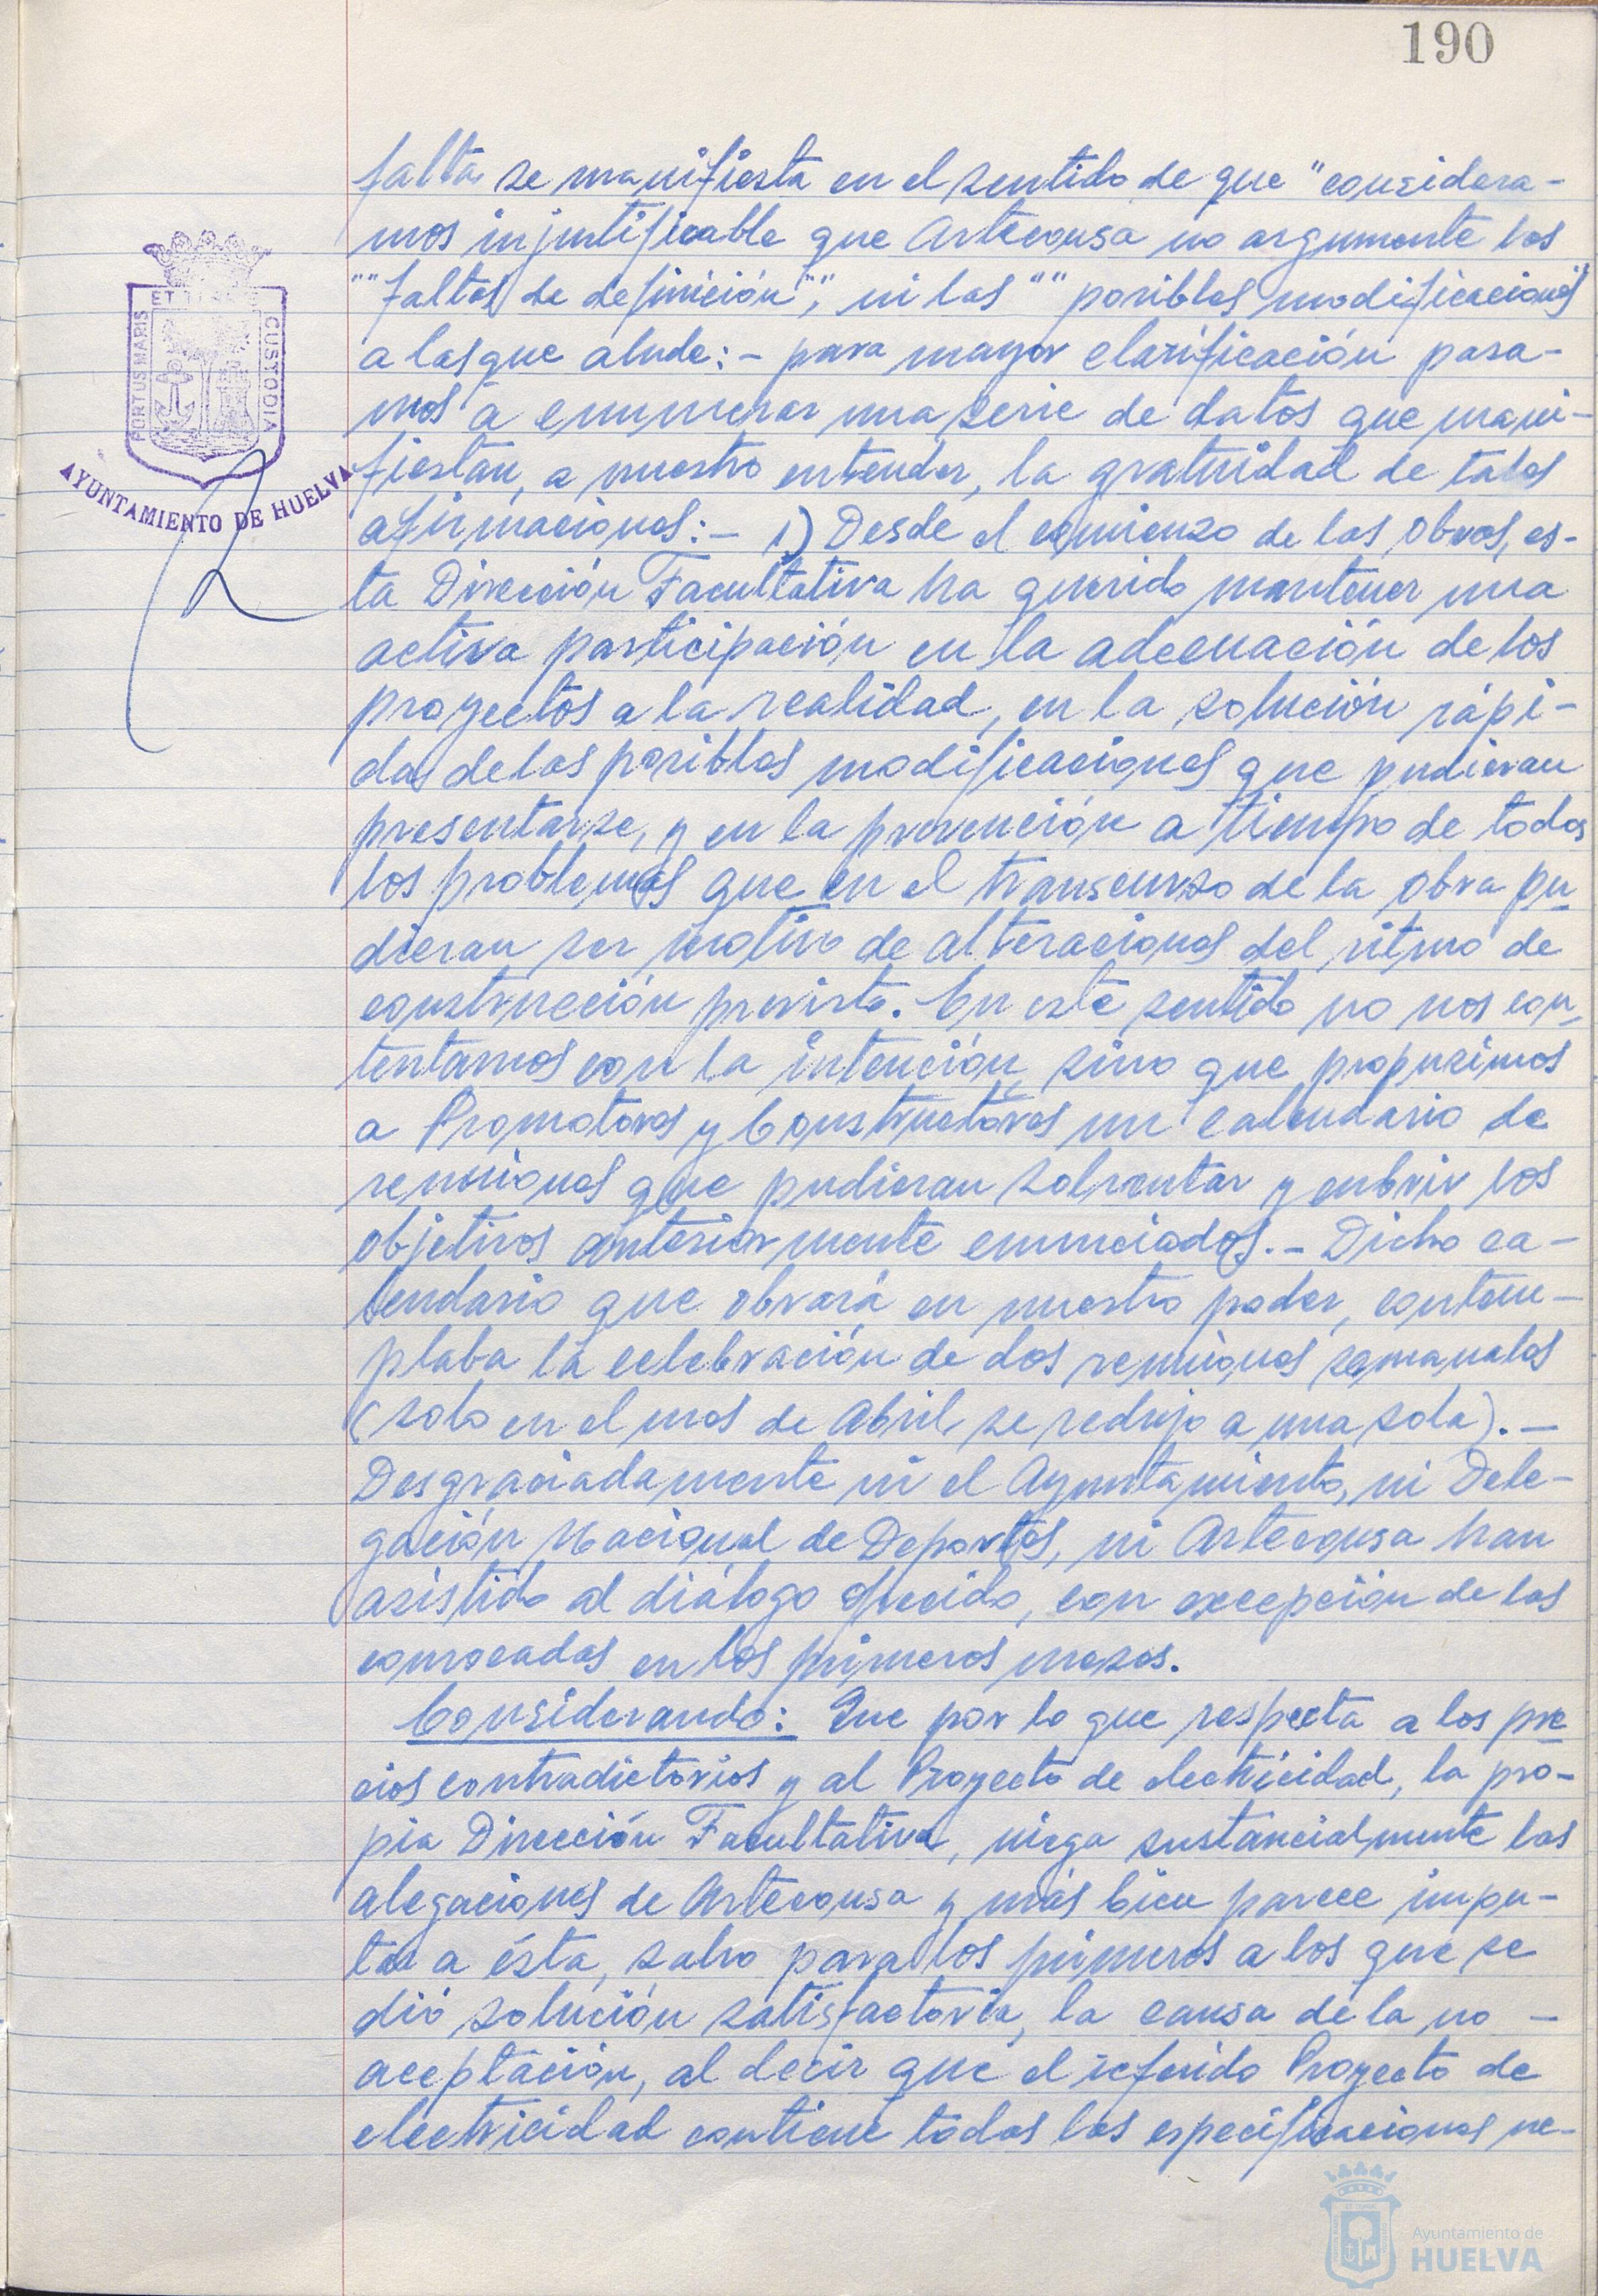 190
falta se manifiesta en el sentido de que "considera-
mos injustificable que Artecousa no argumente las
""faltas de definición"", ni las ""posibles modificaciones"
a las que alude:- para mayor clarificación pasa-
mos a enumerar una serie de datos que mani-
fiestan, a nuestro entender, la gratuidad de tales
afirmaciones:- 1) Desde el comienzo de las obras, es-
ta Dirección Facultativa ha querido mantener una
activa participación en la adecuación de los
proyectos a la realidad, en la solución rápi-
da de las posibles modificaciones que pudieran
presentarse, y en la prevención a tiempo de todos
los problemas que en el transcurso de la obra pu-
dieran ser motivo de alteraciones del ritmo de
construcción previsto. En este sentido no nos con-
tentamos con la intención, sino que propusimos
a Promotores y Constructores un calendario de
reuniones que pudieran solventar y cubrir los
objetivos anteriormente enunciados.- Dicho ca-
lendario que obrará en nuestro poder, contem-
plaba la celebración de dos reuniones semanales
(solo en el mes de Abril se redujo a una sola).-
Desgraciadamente ni el Ayuntamiento, ni Dele-
gación Nacional de Deportes, ni Artecousa han
asistido al diálogo ofrecido, con excepción de las
convocadas en los primeros meses.
Considerando: Que por lo que respecta a los pre
cios contradictorios y al Proyecto de electricidad, la pro-
pia Dirección Facultativa, niega sustancialmente las
alegaciones de Artecousa y más bien parece impu-
tar a ésta, salvo para los primeros a los que se
dió solución satisfactoria, la causa de la no -
aceptación, al decir que el referido Proyecto de
electricidad contiene todas las especificaciones ne-
PORTUS MARIS ET TERRAE CUSTODIA
AYUNTAMIENTO DE HUELVA
Ayuntamiento de
HUELVA